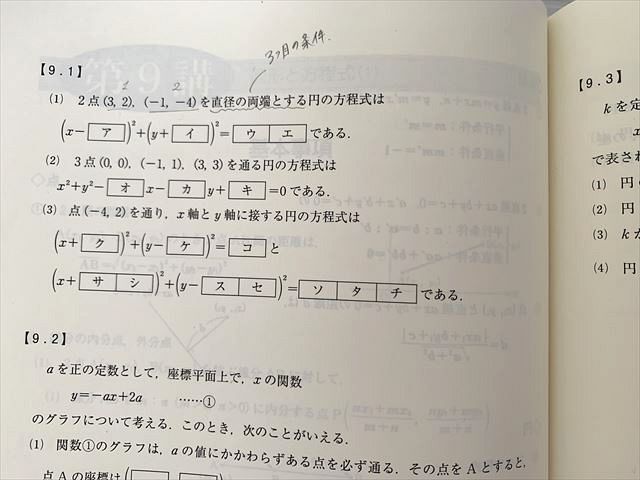 3つ目の条件.
【9.1】
1 2
(1) 2点(3, 2), (−1, −4)を直径の両端とする円の方程式は
(x−ア)²+(y+イ)²=ウエである.
(2) 3点(0, 0), (−1, 1), (3, 3)を通る円の方程式は
x²+y²−オx−カy+キ=0である.
(3) 点(−4, 2)を通り, x軸とy軸に接する円の方程式は
(x+ク)²+(y−ケ)²=コと
(x+サシ)²+(y−スセ)²=ソタチである.
【9.2】
aを正の定数として, 座標平面上で, xの関数
y=−ax+2a ……①
のグラフについて考える. このとき, 次のことがいえる.
(1) 関数①のグラフは, aの値にかかわらずある点を必ず通る. その点をAとすると,
点Aの座標は(
【9.3】
kを定
x
で表され
(1) 円
(2) 円
(3) kが
(4) 円